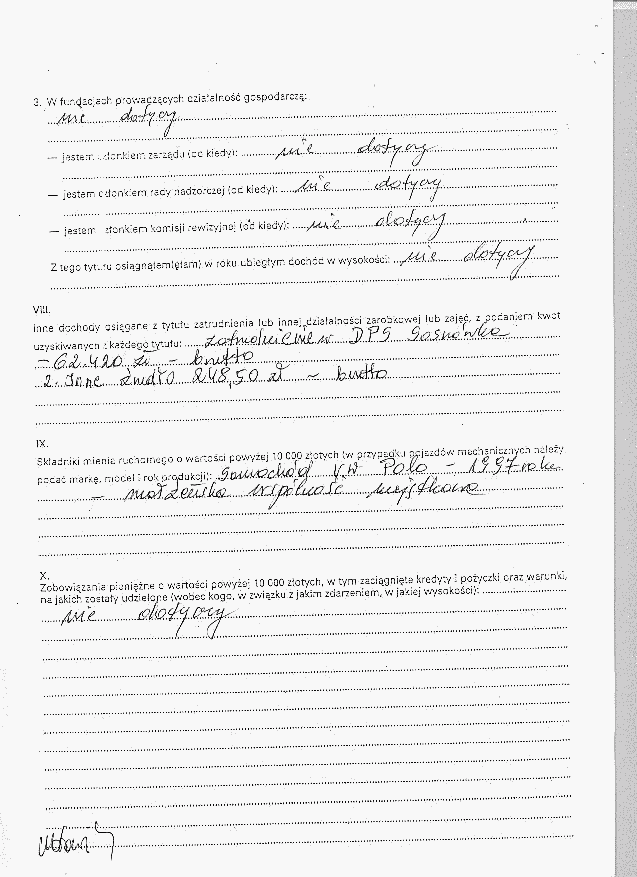 3. W fundacjach prowadzących działalność gospodarczą:
nie dotyczy
— jestem członkiem zarządu (od kiedy): nie dotyczy
— jestem członkiem rady nadzorczej (od kiedy): nie dotyczy
— jestem członkiem komisji rewizyjnej (od kiedy): nie dotyczy
Z tego tytułu osiągnąłem(ęłam) w roku ubiegłym dochód w wysokości: nie dotyczy
VIII.
Inne dochody osiągane z tytułu zatrudnienia lub innej działalności zarobkowej lub zajęć, z podaniem kwot
uzyskiwanych z każdego tytułu: zatrudnienie w DPS Sosnówka
– 62.420 zł – brutto
2. Inne źródło 248,50 zł – brutto
IX.
Składniki mienia ruchomego o wartości powyżej 10 000 złotych (w przypadku pojazdów mechanicznych należy
podać markę, model i rok produkcji): Samochód VW Polo – 1997 roku
– małżeńska wspólność majątkowa
X.
Zobowiązania pieniężne o wartości powyżej 10 000 złotych, w tym zaciągnięte kredyty i pożyczki oraz warunki,
na jakich zostały udzielone (wobec kogo, w związku z jakim zdarzeniem, w jakiej wysokości):
nie dotyczy